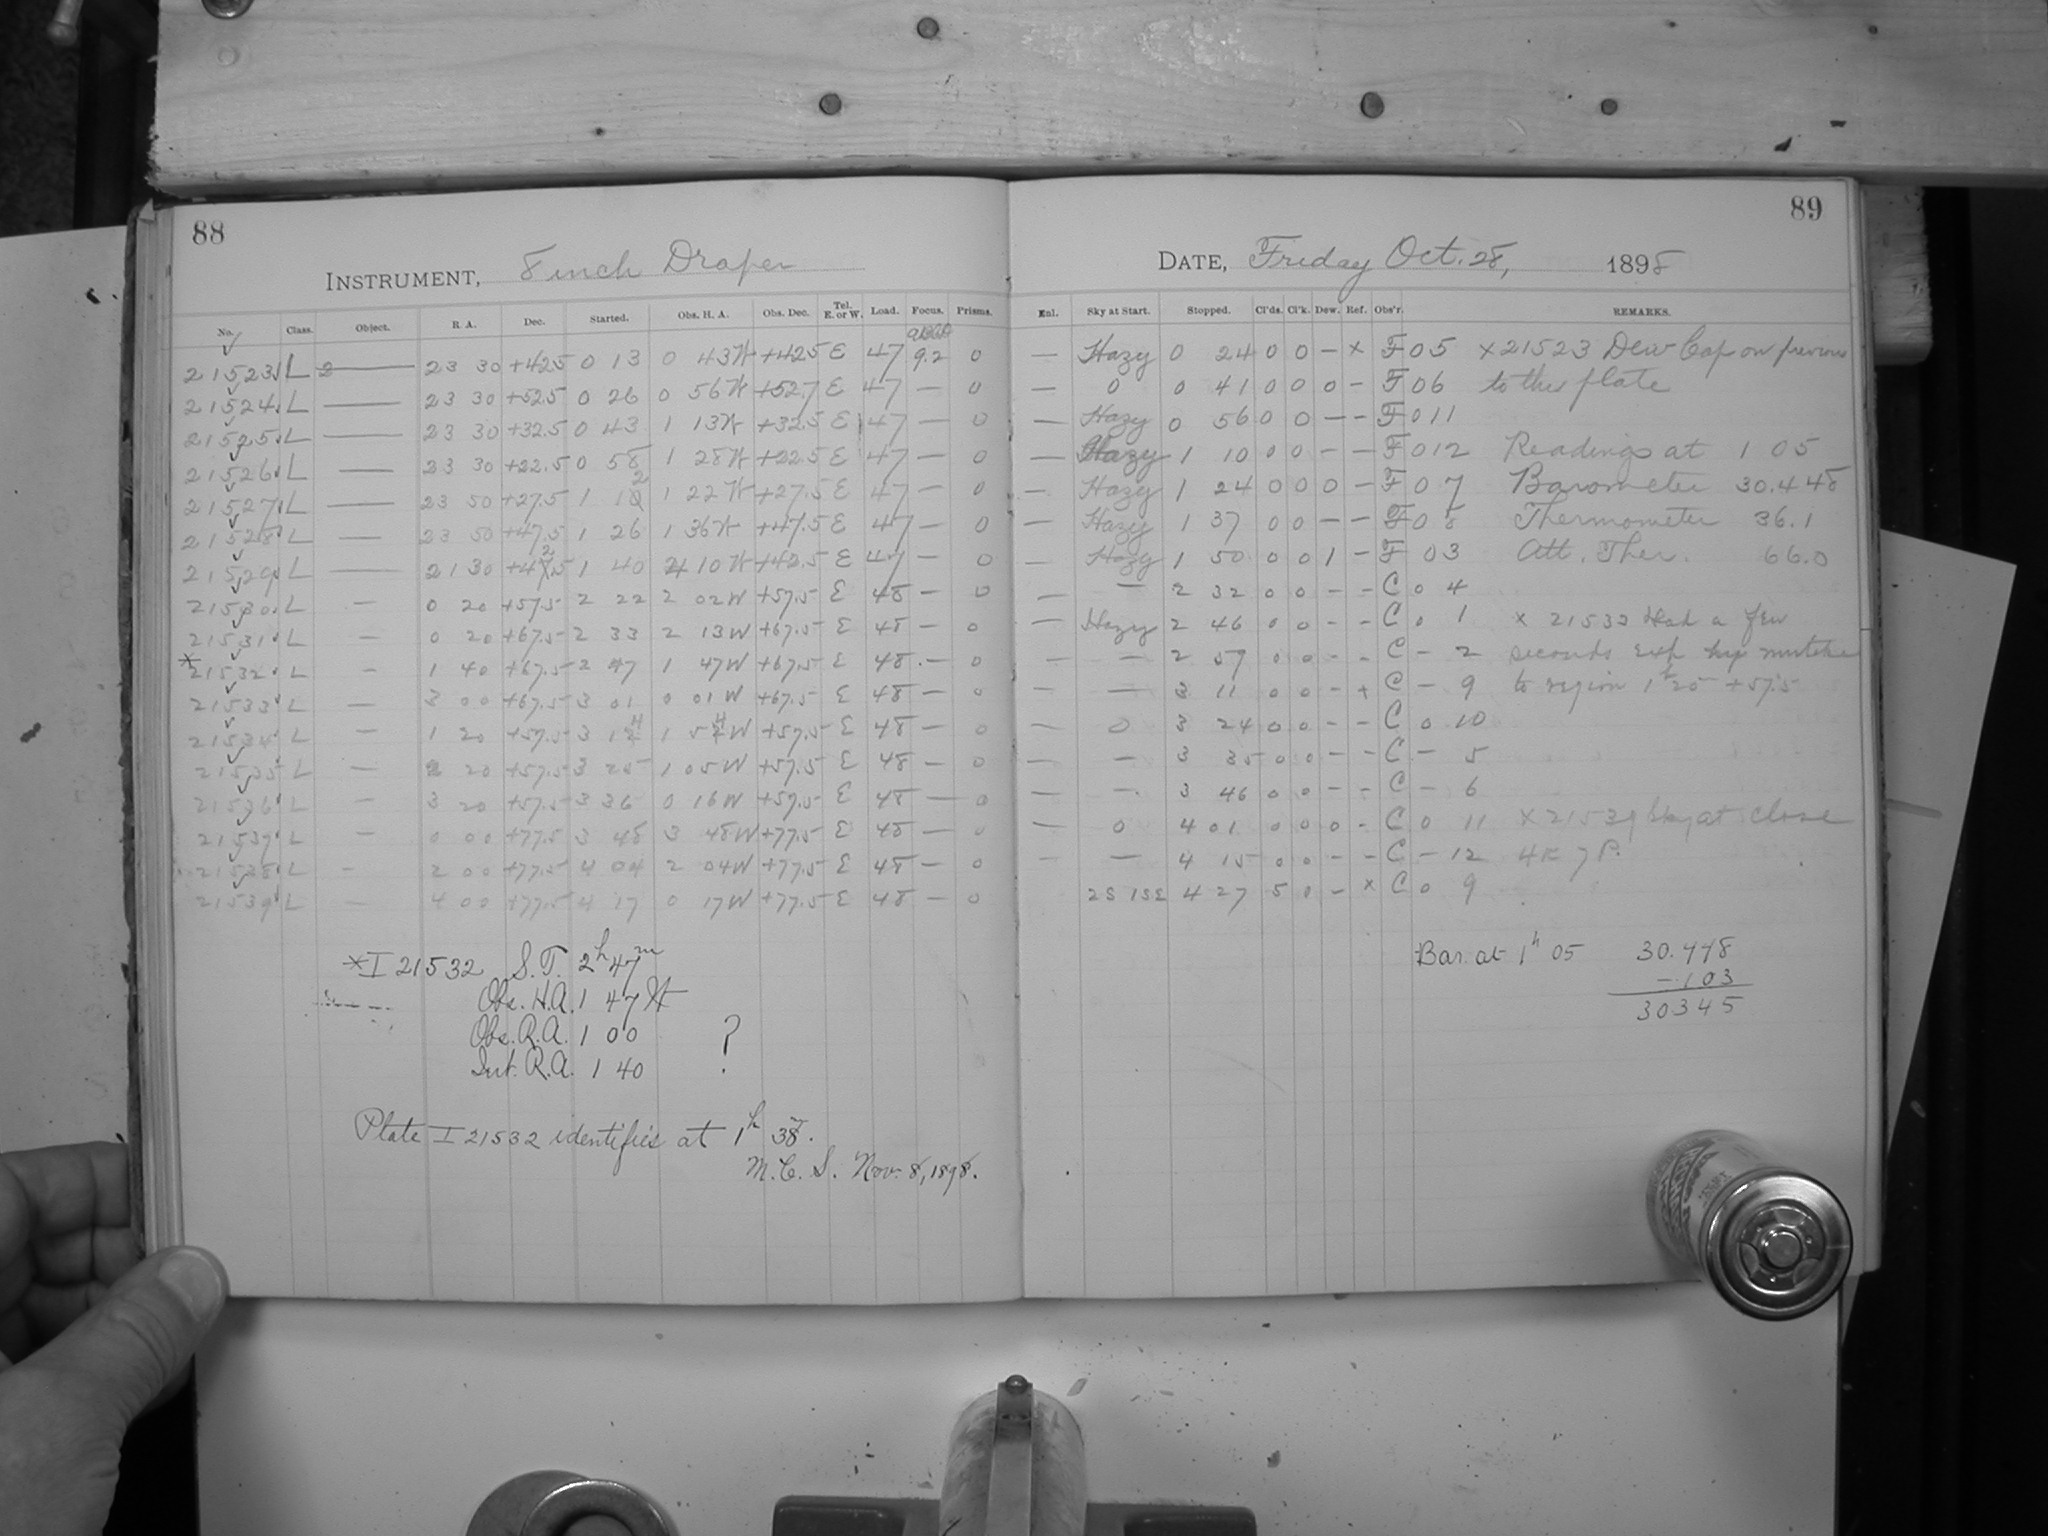 88
INSTRUMENT, 8 inch Draper
No. Class. Object. R. A. Dec. Started. Obs. H. A. Obs. Dec. Tel. E. or W. Load. Focus. Prisms.
21523 L 2 — 23 30 +42.5 0 13 0 43 W +42.5 E 47 9.2 0
21524 L — 23 30 +52.5 0 26 0 56 W +52.7 E 47 — 0
21525 L — 23 30 +32.5 0 43 1 13 W +32.5 E 47 — 0
21526 L — 23 30 +22.5 0 58 1 28 W +22.5 E 47 — 0
21527 L — 23 50 +27.5 1 12 1 22 W +27.5 E 47 — 0
21528 L — 23 50 +47.5 1 26 1 36 W +47.5 E 47 — 0
21529 L — 21 30 +42.5 1 40 4 10 W +42.5 E 47 — 0
21530 L — 0 20 +57.5 2 22 2 02 W +57.5 E 48 — 0
21531 L — 0 20 +67.5 2 33 2 13 W +67.5 E 48 — 0
*21532 L — 1 40 +67.5 2 47 1 47 W +67.5 E 48 — 0
21533 L — 3 00 +67.5 3 01 0 01 W +67.5 E 48 — 0
21534 L — 1 20 +57.5 3 14 1 54 W +57.5 E 48 — 0
21535 L — 2 20 +57.5 3 25 1 05 W +57.5 E 48 — 0
21536 L — 3 20 +57.5 3 36 0 16 W +57.5 E 48 — 0
21537 L — 0 00 +77.5 3 48 3 48 W +77.5 E 48 — 0
21538 L — 2 00 +77.5 4 04 2 04 W +77.5 E 48 — 0
21539 L — 4 00 +77.5 4 17 0 17 W +77.5 E 48 — 0
*I 21532 S.T. 2h 47m
Obs. H.A. 1 47 W
Obs. R.A. 1 00 ?
Int. R.A. 1 40
Plate I 21532 identifies at 1h 38.
M. C. S. Nov. 8, 1898.
89
DATE, Friday Oct. 28, 1898
Enl. Sky at Start. Stopped. Cl'ds. Cl'k. Dew. Ref. Obs'r. REMARKS.
— Hazy 0 24 0 0 – x F 0 5 x 21523 Dew Cap on previous
— 0 0 41 0 0 0 – F 0 6 to this plate
— Hazy 0 56 0 0 – – F 0 11
— Hazy 1 10 0 0 – – F 0 12 Readings at 1 05
— Hazy 1 24 0 0 0 – F 0 7 Barometer 30.448
— Hazy 1 37 0 0 – – F 0 8 Thermometer 36.1
— Hazy 1 50 0 0 1 – F 0 3 Att. Ther. 66.0
— — 2 32 0 0 – – C 0 4
— Hazy 2 46 0 0 – – C 0 1 x 21532 Had a few
— — 2 57 0 0 – – C – 2 seconds exp by mistake
— — 3 11 0 0 – + C – 9 to region 1h 20 +57.5
— 0 3 24 0 0 – – C 0 10
— — 3 35 0 0 – – C – 5
— — 3 46 0 0 – – C – 6
— 0 4 01 0 0 0 – C 0 11 x 21539 Sky at close
— — 4 15 0 0 – – C – 12
2S 1SE 4 27 5 0 – x C 0 9
Bar. at 1h 05 30.448
–.103
30345